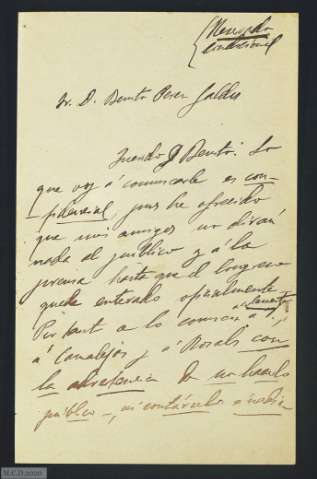 Reservada
condicional
Sr. D. Benito Perez Galdós
Querido D. Benito: Lo
que voy á comunicarle es con-
fidencial, pues he ofrecido
que mis amigos no dirán
nada al público y á la
prensa hasta que el Congreso
quede enterado oficialmente
Por tant a lo comunico á
á Canalejas y á Rosals con
la advertencia de no hacerlo
público -, ni contárselo á nadie
M.C.D. 2020